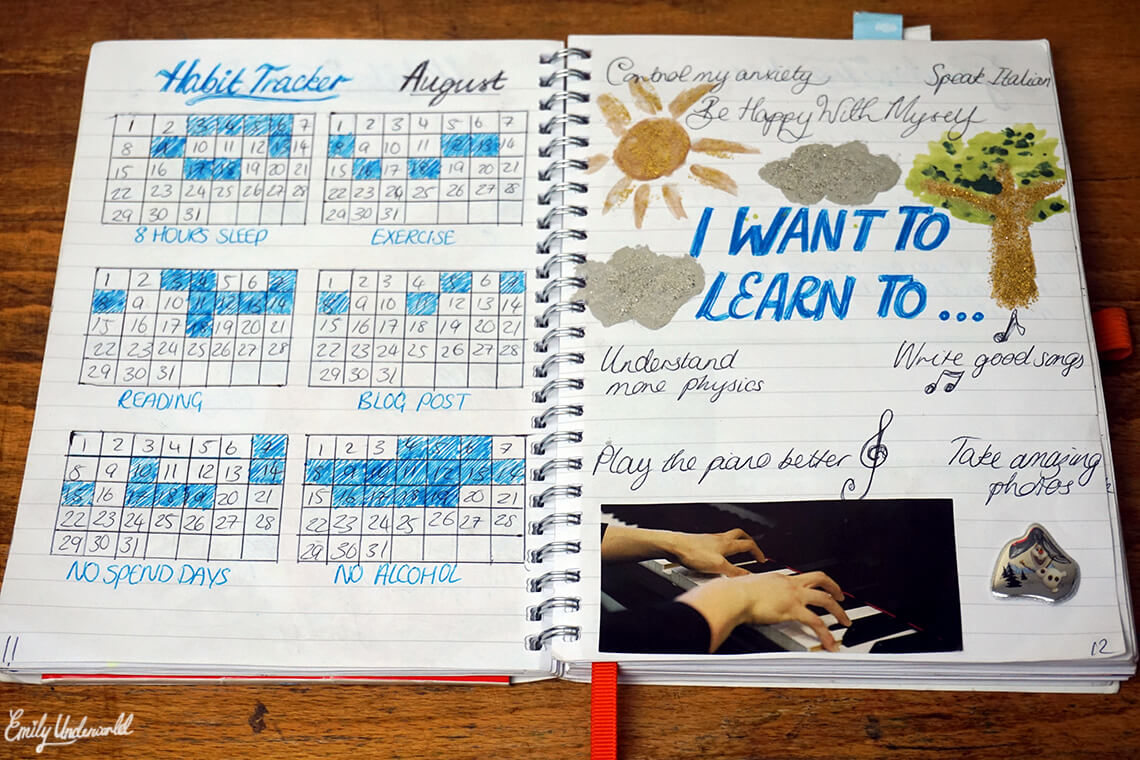 Habit Tracker August
1 2 3 4 5 6 7
8 9 10 11 12 13 14
15 16 17 18 19 20 21
22 23 24 25 26 27 28
29 30 31
8 HOURS SLEEP
1 2 3 4 5 6 7
8 9 10 11 12 13 14
15 16 17 18 19 20 21
22 23 24 25 26 27 28
29 30 31
EXERCISE
1 2 3 4 5 6 7
8 9 10 11 12 13 14
15 16 17 18 19 20 21
22 23 24 25 26 27 28
29 30 31
READING
1 2 3 4 5 6 7
8 9 10 11 12 13 14
15 16 17 18 19 20 21
22 23 24 25 26 27 28
29 30 31
BLOG POST
1 2 3 4 5 6 7
8 9 10 11 12 13 14
15 16 17 18 19 20 21
22 23 24 25 26 27 28
29 30 31
NO SPEND DAYS
1 2 3 4 5 6 7
8 9 10 11 12 13 14
15 16 17 18 19 20 21
22 23 24 25 26 27 28
29 30 31
NO ALCOHOL
11
Control my anxiety
Speak Italian
Be Happy With Myself
I WANT TO
LEARN TO ...
Understand
more physics
Write good songs
Play the piano better
Take amazing
photos
12
Emily Underworld